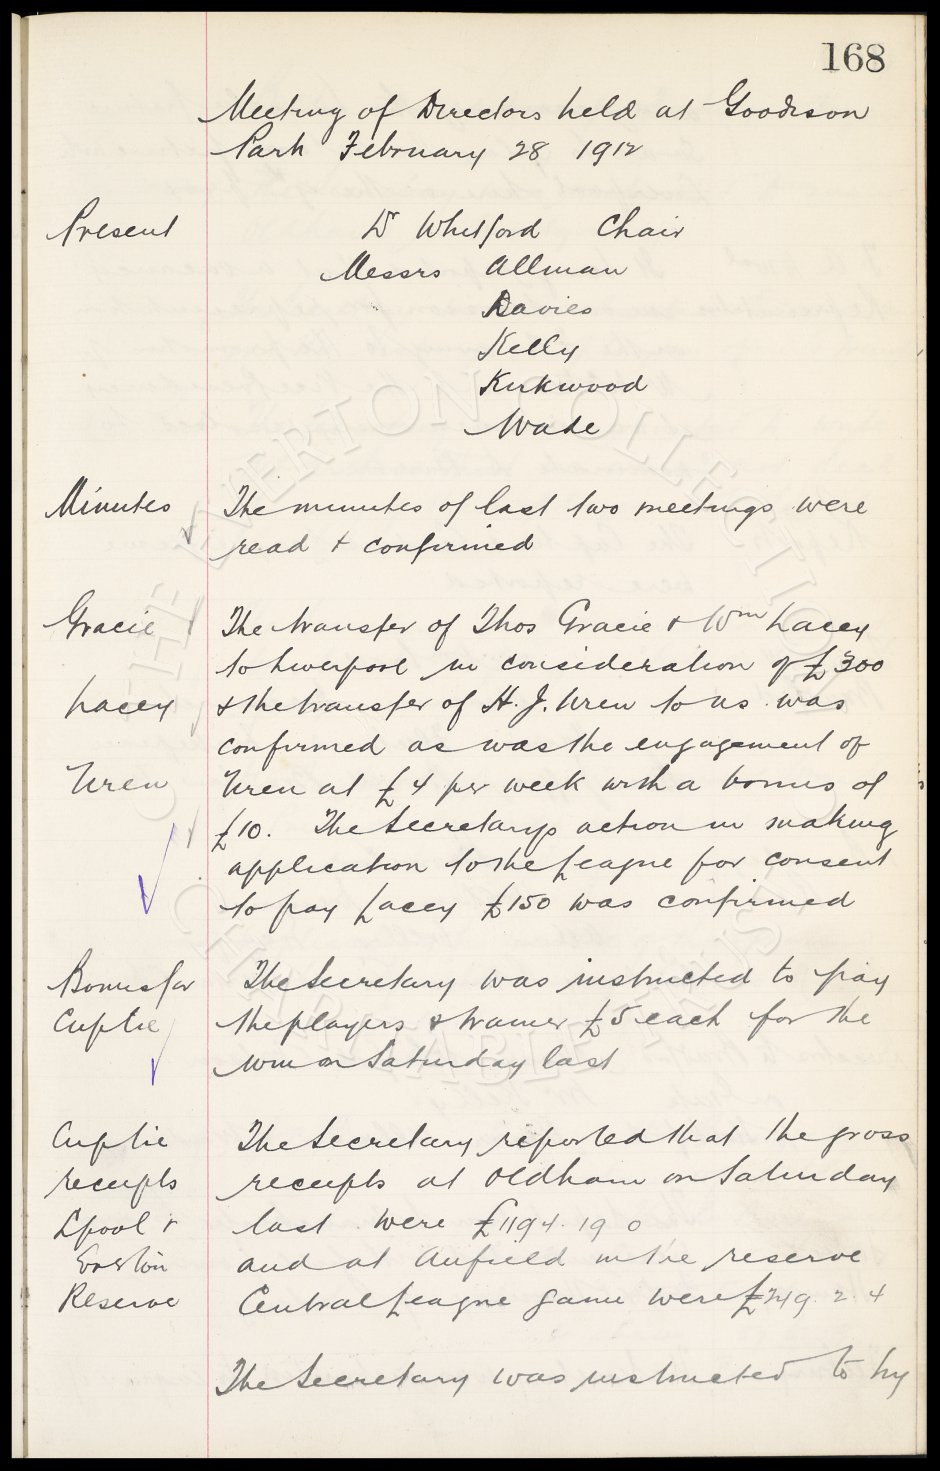 168
Meeting of Directors held at Goodison
Park February 28 1912
Present
Dr Whitford Chair
Messrs Allman
Davies
Kelly
Kirkwood
Wade
Minutes The minutes of last two meetings were
read & confirmed
Gracie The transfer of Thos Gracie & Wm Lacey
to Liverpool in consideration of £300
Lacey & the transfer of H. J. Uren to us was
confirmed as was the engagement of
Uren Uren at £4 per week with a bonus of
£10. The Secretarys action in making
application to the League for consent
to pay Lacey £150 was confirmed
Bonus for The Secretary was instructed to pay
Cuptie the players & trainer £5 each for the
win on Saturday last
Cup tie The Secretary reported that the gross
receipts receipts at Oldham on Saturday
Lpool & last were £1194. 19 0
Everton and at Anfield in the reserve
Reserve Central League game were £249. 2. 4
The Secretary was instructed to try
THE EVERTON COLLECTION
CHARITABLE TRUST